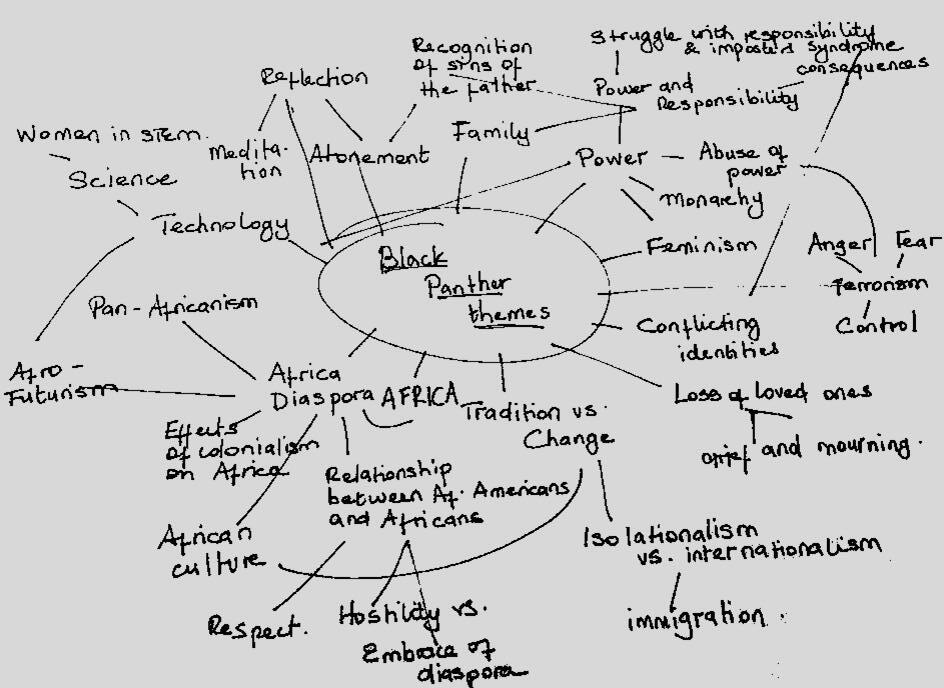 Struggle with responsibility
& imposter syndrome
consequences
Recognition
of sins of
the father
Reflection
Power and
Responsibility
Family
Women in STEM.
Medita-
tion
Atonement
Power
Abuse of
power
Science
Monarchy
Technology
Feminism
Anger
Fear
Black
Panther
themes
Terrorism
Pan-Africanism
Conflicting
identities
Control
Afro-
Futurism
Africa
Diaspora
AFRICA
Tradition vs.
Change
Loss of loved ones
grief and mourning.
Effects
of colonialism
on Africa
Relationship
between Af. Americans
and Africans
African
culture
Isolationalism
vs. internationalism
Respect.
Hostility vs.
Embrace of
diaspora
immigration.